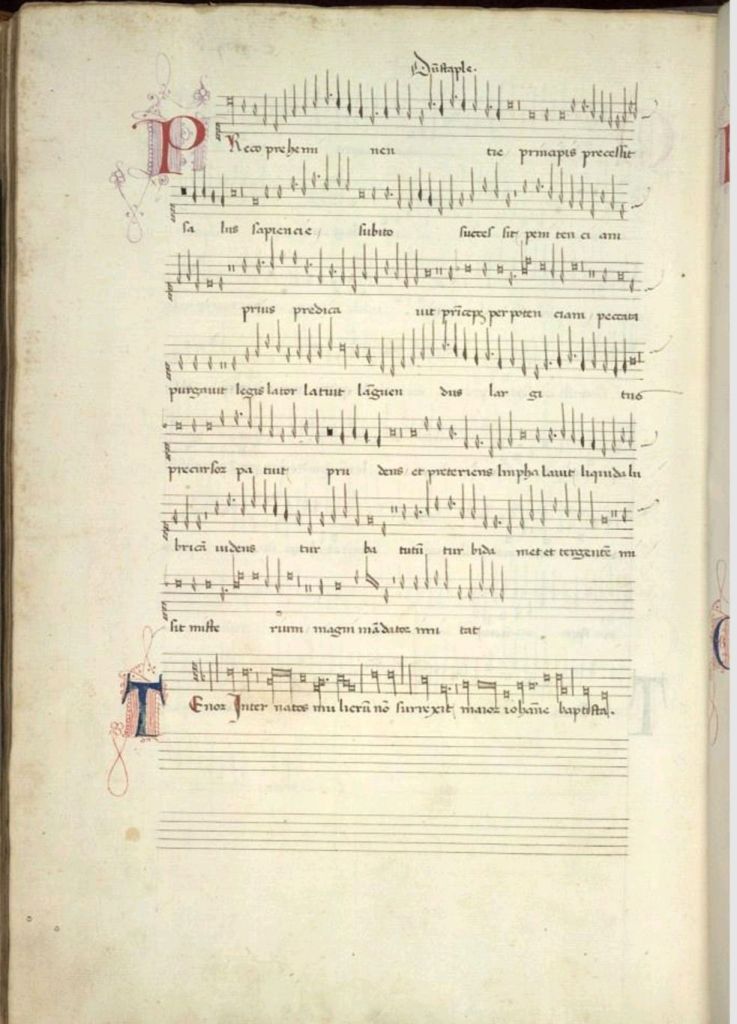 Dūstaple.
PReco prehemi nen tie principis precessit
sa lus sapiencie subito succes sit pem ten ci am
prius predica uit prīceps per poten ciam peccata
purgauit legis lator latuit lāguen dus lar gi tus
precursor pa tuit pru dens et preteriens limpha lauit liquida lu
bricā uidens tur ba tutū tur bida met et tergentē mi
sit miste rium magni mādator mu tat
TEnor Inter natos mu lierū nō surrexit maior iohāne baptista.